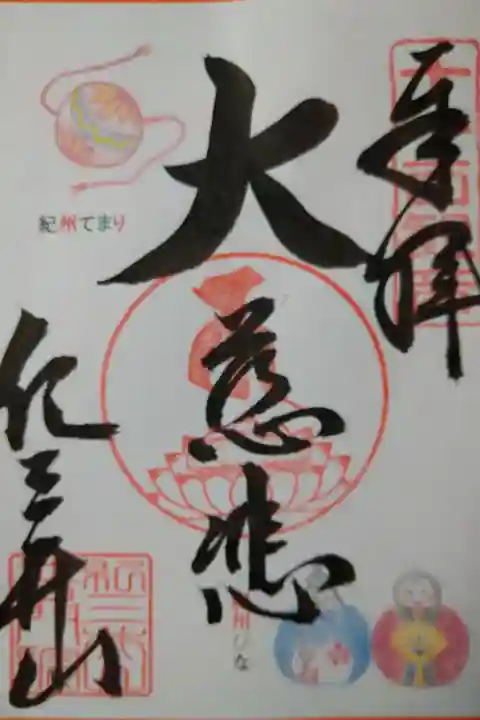 奉拝
大慈悲
紀三井山
紀州てまり
州びな